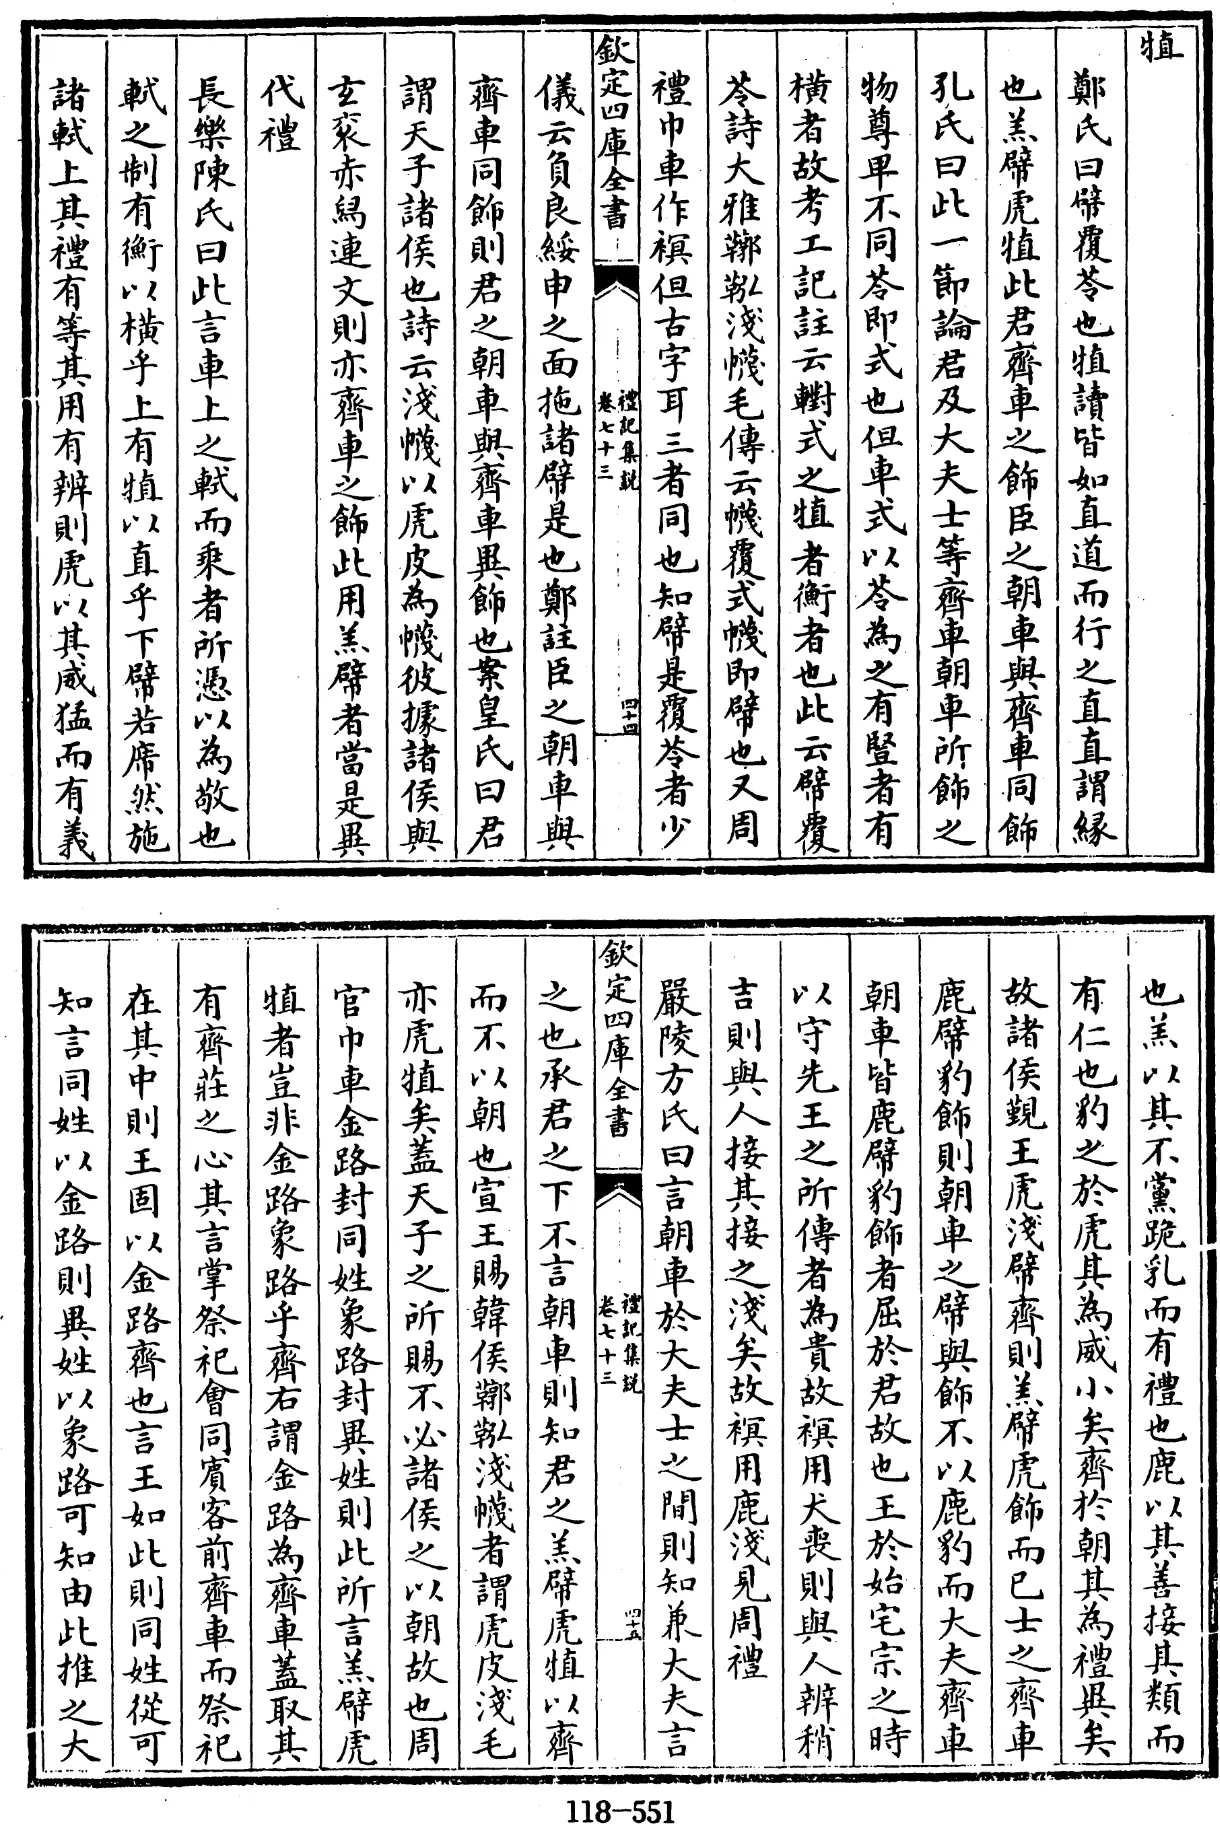 犆
鄭氏曰幦覆苓也犆讀皆如直道而行之直直謂緣
也羔幦虎犆此君齊車之飾臣之朝車與齊車同飾
孔氏曰此一節論君及大夫士等齊車朝車所飾之
物尊卑不同苓即式也但車式以苓為之有豎者有
橫者故考工記註云轛式之犆者衡者也此云幦覆
苓詩大雅鞹鞃淺幭毛傳云幭覆式幭即幦也又周
禮巾車作䙪但古字耳三者同也知幦是覆苓者少
欽定四庫全書
禮記集說
卷七十三
四十四
儀云負良綏申之面拖諸幦是也鄭註臣之朝車與
齊車同飾則君之朝車與齊車異飾也案皇氏曰君
謂天子諸侯也詩云淺幭以虎皮為幭彼據諸侯與
玄衮赤舄連文則亦齊車之飾此用羔幦者當是異
代禮
長樂陳氏曰此言車上之軾而乘者所憑以為敬也
軾之制有衡以橫乎上有犆以直乎下幦若席然施
諸軾上其禮有等其用有辨則虎以其威猛而有義
也羔以其不黨跪乳而有禮也鹿以其善接其類而
有仁也豹之於虎其為威小矣齊於朝其為禮異矣
故諸侯覲王虎淺幦齊則羔幦虎飾而已士之齊車
鹿幦豹飾則朝車之幦與飾不以鹿豹而大夫齊車
朝車皆鹿幦豹飾者屈於君故也王於始宅宗之時
以守先王之所傳者為貴故䙪用犬喪則與人辨稍
吉則與人接其接之淺矣故䙪用鹿淺見周禮
嚴陵方氏曰言朝車於大夫士之間則知兼大夫言
欽定四庫全書
禮記集說
卷七十三
四十五
之也承君之下不言朝車則知君之羔幦虎犆以齊
而不以朝也宣王賜韓侯鞹鞃淺幭者謂虎皮淺毛
亦虎犆矣蓋天子之所賜不必諸侯之以朝故也周
官巾車金路封同姓象路封異姓則此所言羔幦虎
犆者豈非金路象路乎齊右謂金路為齊車蓋取其
有齊莊之心其言掌祭祀會同賓客前齊車而祭祀
在其中則王固以金路齊也言王如此則同姓從可
知言同姓以金路則異姓以象路可知由此推之大
118-551